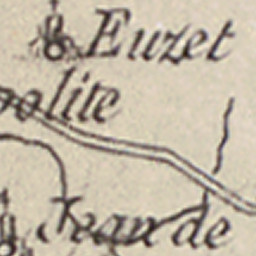 Euzet
polite
Jean de